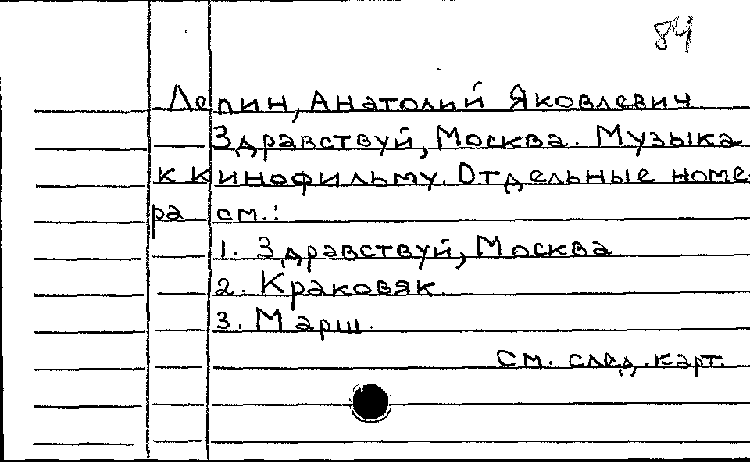 84
Лепин, Анатолий Яковлевич
Здравствуй, Москва. Музыка
к кинофильму. Отдельные номе-
ра см.:
1. Здравствуй, Москва
2. Краковяк.
3. Марш.
См. след. карт.